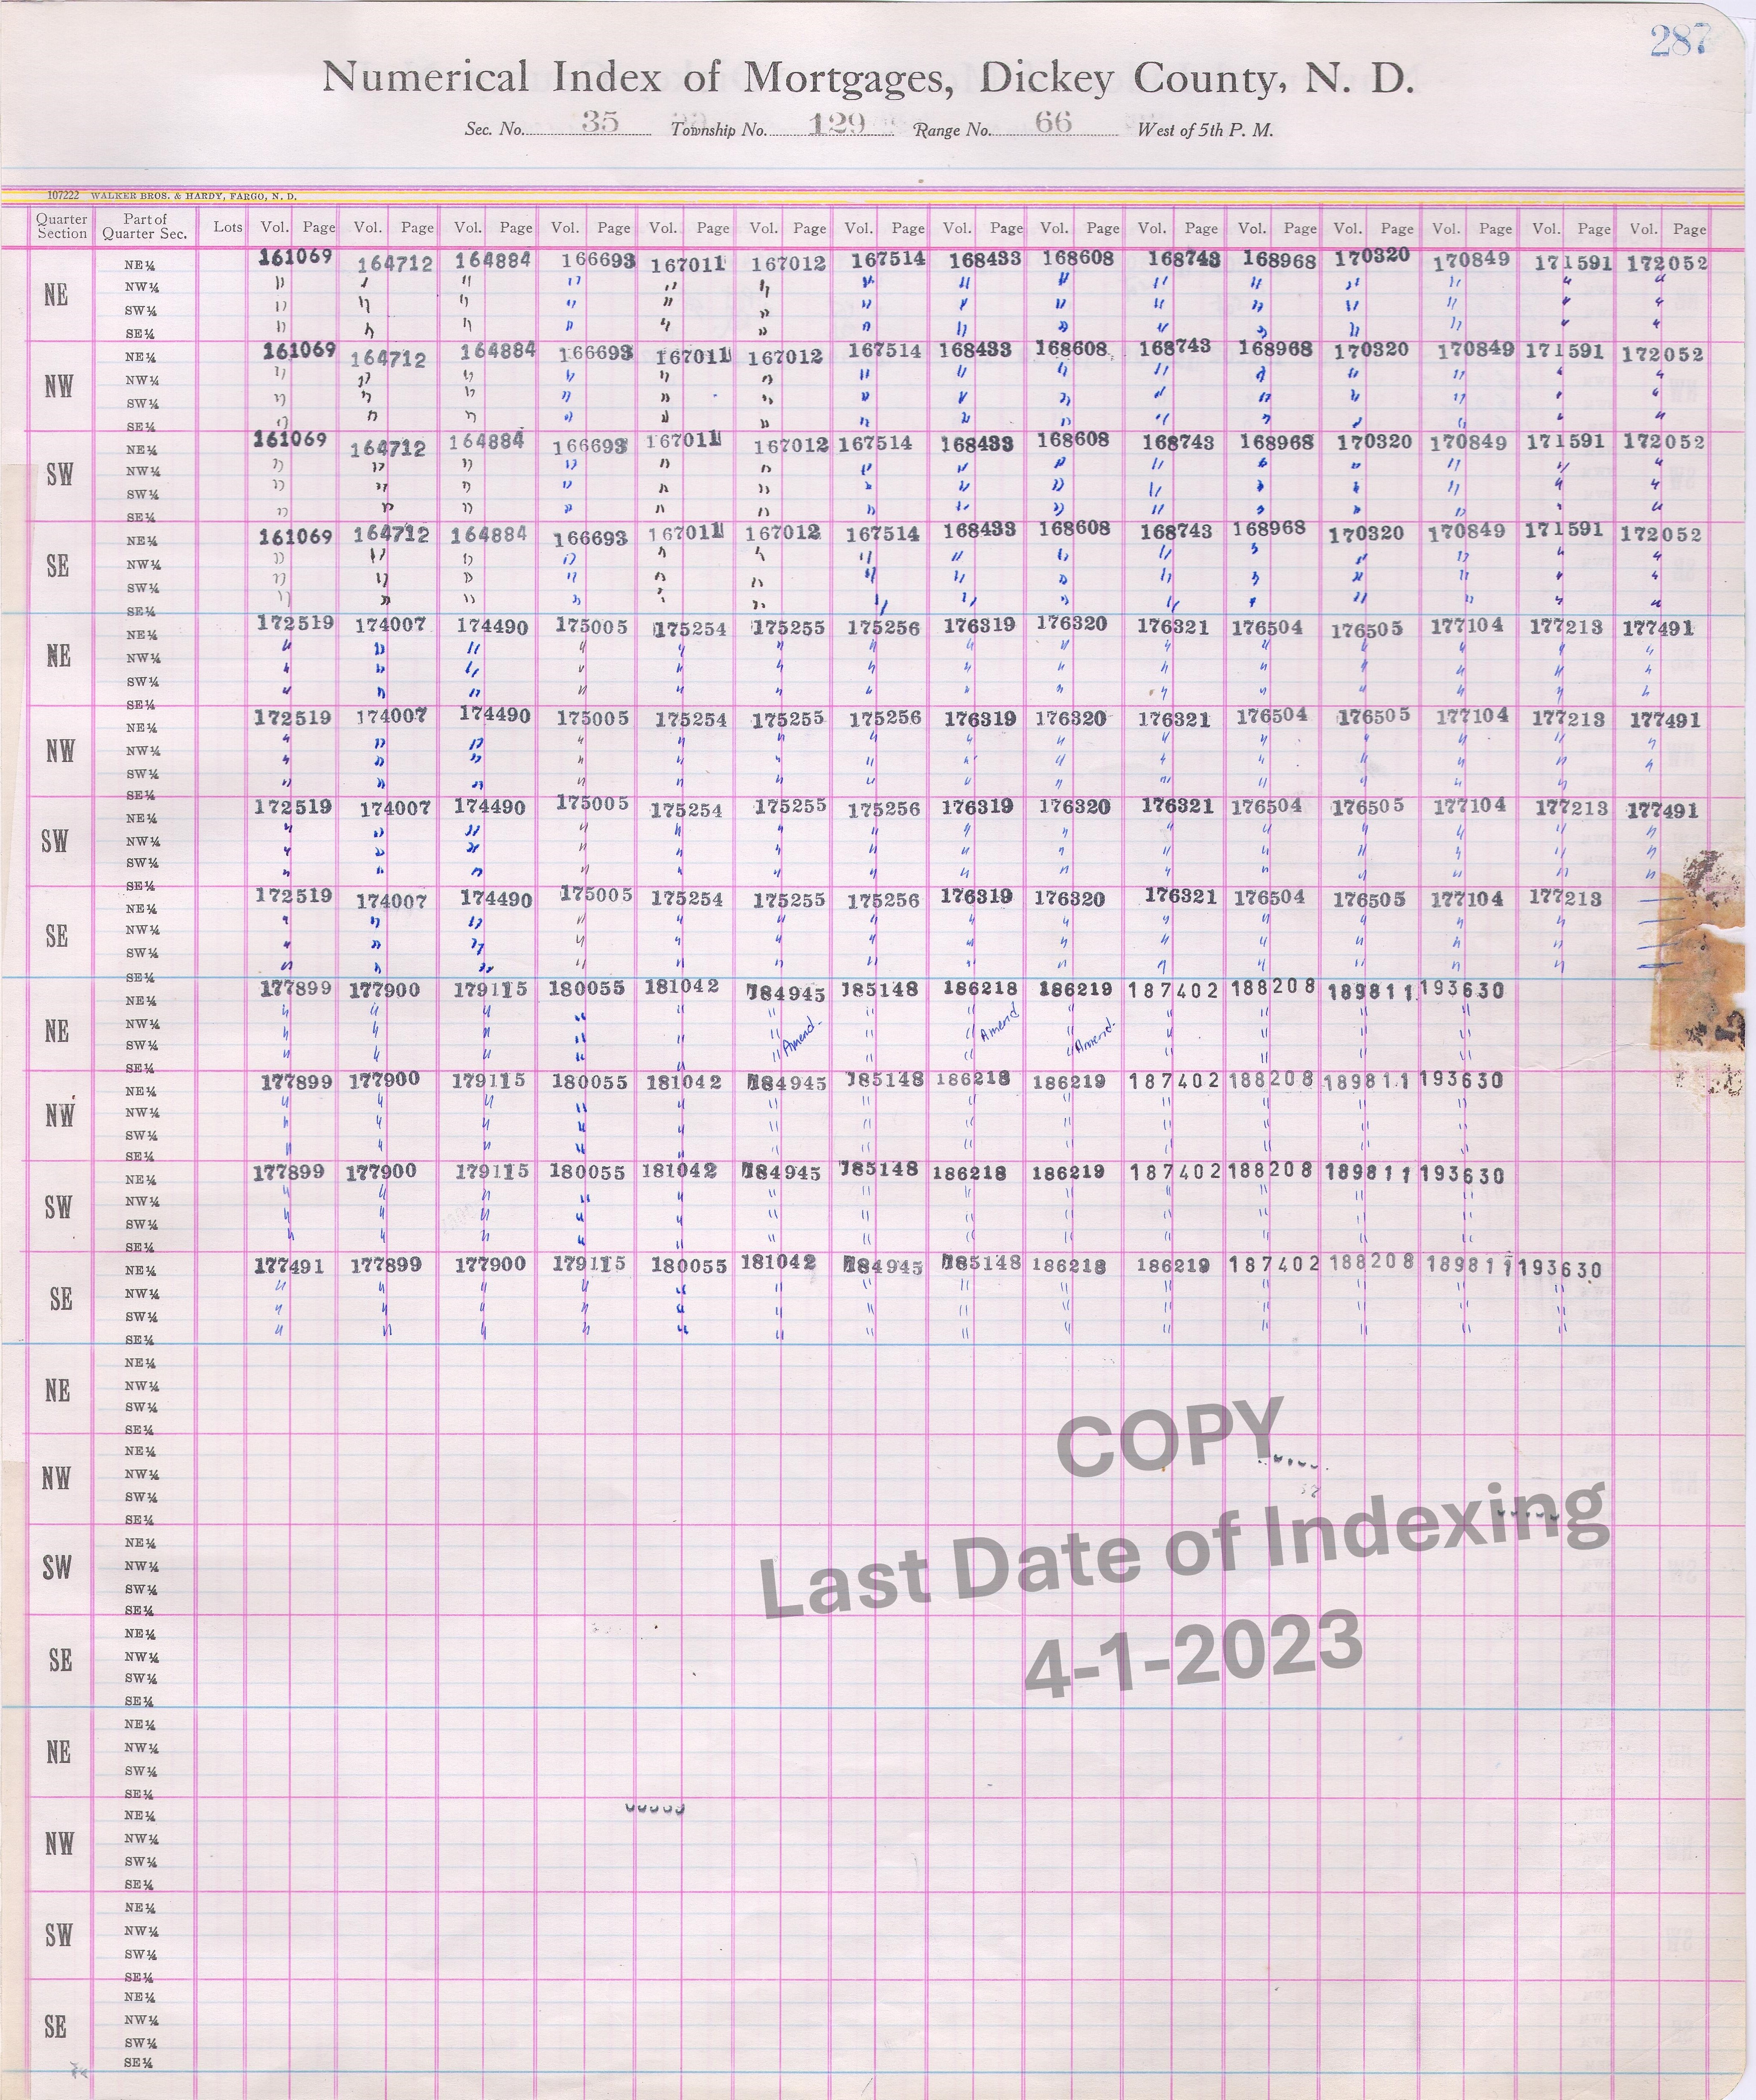 287
Numerical Index of Mortgages, Dickey County, N. D.
Sec. No. 35 Township No. 129 Range No. 66 West of 5th P. M.
107222 WALKER BROS. & HARDY, FARGO, N. D.
Quarter Section Part of Quarter Sec. Lots Vol. Page Vol. Page Vol. Page Vol. Page Vol. Page Vol. Page Vol. Page Vol. Page Vol. Page Vol. Page Vol. Page Vol. Page Vol. Page Vol. Page Vol. Page
NE NE¼ 161069 164712 164884 166693 167011 167012 167514 168433 168608 168743 168968 170320 170849 171591 172052
NW¼ " " " " " " " " " " " " " " "
SW¼ " " " " " " " " " " " " " " "
SE¼ " " " " " " " " " " " " " " "
NW NE¼ 161069 164712 164884 166693 167011 167012 167514 168433 168608 168743 168968 170320 170849 171591 172052
NW¼ " " " " " " " " " " " " " " "
SW¼ " " " " " " " " " " " " " " "
SE¼ " " " " " " " " " " " " " " "
SW NE¼ 161069 164712 164884 166693 167011 167012 167514 168433 168608 168743 168968 170320 170849 171591 172052
NW¼ " " " " " " " " " " " " " " "
SW¼ " " " " " " " " " " " " " " "
SE¼ " " " " " " " " " " " " " " "
SE NE¼ 161069 164712 164884 166693 167011 167012 167514 168433 168608 168743 168968 170320 170849 171591 172052
NW¼ " " " " " " " " " " " " " " "
SW¼ " " " " " " " " " " " " " " "
SE¼ " " " " " " " " " " " " " " "
NE NE¼ 172519 174007 174490 175005 175254 175255 175256 176319 176320 176321 176504 176505 177104 177213 177491
NW¼ " " " " " " " " " " " " " " "
SW¼ " " " " " " " " " " " " " " "
SE¼ " " " " " " " " " " " " " " "
NW NE¼ 172519 174007 174490 175005 175254 175255 175256 176319 176320 176321 176504 176505 177104 177213 177491
NW¼ " " " " " " " " " " " " " " "
SW¼ " " " " " " " " " " " " " " "
SE¼ " " " " " " " " " " " " " "
SW NE¼ 172519 174007 174490 175005 175254 175255 175256 176319 176320 176321 176504 176505 177104 177213 177491
NW¼ " " " " " " " " " " " " " " "
SW¼ " " " " " " " " " " " " " " "
SE¼ " " " " " " " " " " " " " " "
SE NE¼ 172519 174007 174490 175005 175254 175255 175256 176319 176320 176321 176504 176505 177104 177213
NW¼ " " " " " " " " " " " " " "
SW¼ " " " " " " " " " " " " " "
SE¼ " " " " " " " " " " " " " "
NE NE¼ 177899 177900 179115 180055 181042 184945 185148 186218 186219 187402 188208 189811 193630
NW¼ " " " " " " " " " " " " "
SW¼ " " " " " " Amend. " " Amend " Amend. " " " "
SE¼ " " " " " " " " " " " " "
NW NE¼ 177899 177900 179115 180055 181042 184945 185148 186218 186219 187402 188208 189811 193630
NW¼ " " " " " " " " " " " " "
SW¼ " " " " " " " " " " " " "
SE¼ " " " " " " " " " " " " "
SW NE¼ 177899 177900 179115 180055 181042 184945 185148 186218 186219 187402 188208 189811 193630
NW¼ " " " " " " " " " " " " "
SW¼ " " " " " " " " " " " " "
SE¼ " " " " " " " " " " " " "
SE NE¼ 177491 177899 177900 179115 180055 181042 184945 185148 186218 186219 187402 188208 189811 193630
NW¼ " " " " " " " " " " " " " "
SW¼ " " " " " " " " " " " " " "
SE¼ " " " " " " " " " " " " " "
NE NE¼
NW¼
SW¼
SE¼
NW NE¼
NW¼
SW¼
SE¼
SW NE¼
NW¼
SW¼
SE¼
SE NE¼
NW¼
SW¼
SE¼
NE NE¼
NW¼
SW¼
SE¼
NW NE¼
NW¼
SW¼
SE¼
SW NE¼
NW¼
SW¼
SE¼
SE NE¼
NW¼
SW¼
SE¼
COPY
Last Date of Indexing
4-1-2023